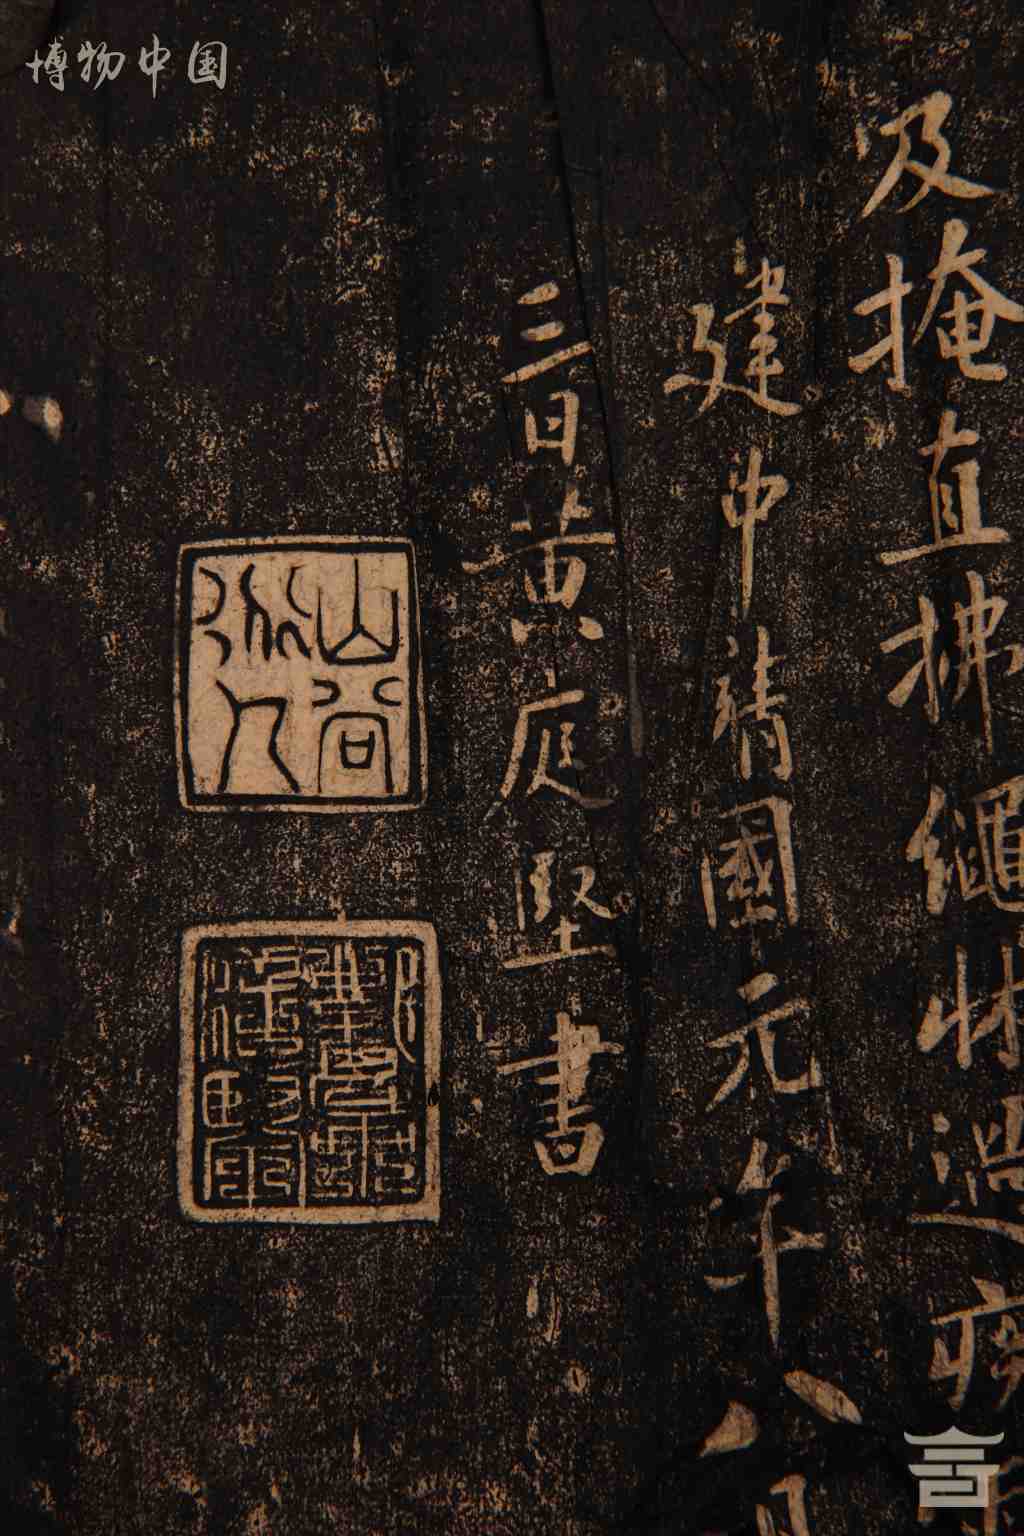 博物中国
及掩直拂繩牀過疾
建中靖國元年八月
三日黃庭堅書
山谷
道人